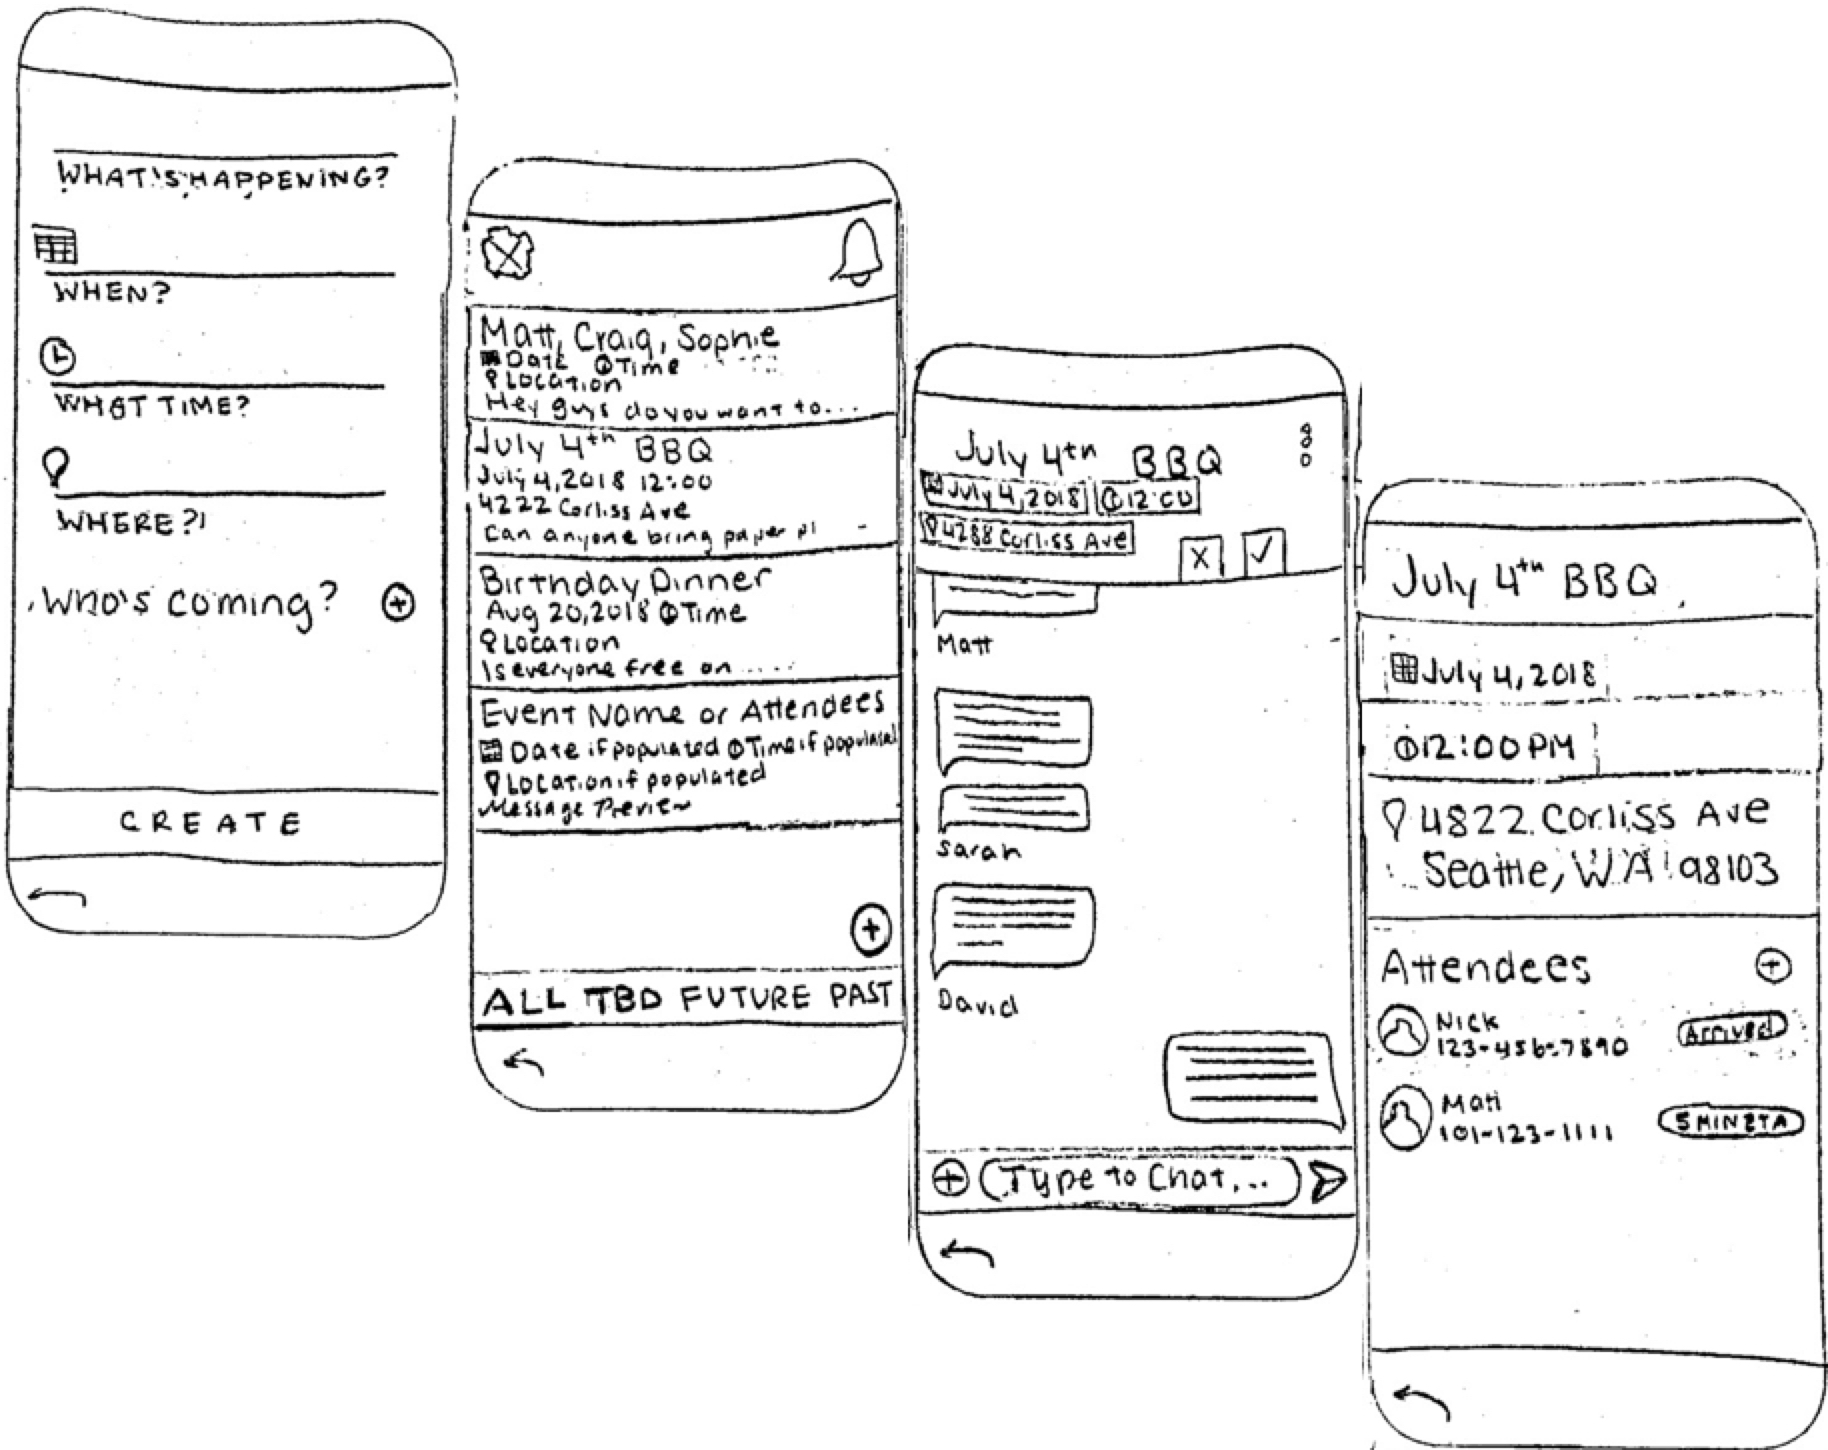 WHAT'S HAPPENING?
WHEN?
WHAT TIME?
WHERE?
Who's coming?
CREATE
Matt, Craig, Sophie
Date Time
Location
Hey guys do you want to...
July 4th BBQ
July 4, 2018 12:00
4222 Corliss Ave
Can anyone bring paper pl
Birthday Dinner
Aug 20, 2018 Time
Location
Is everyone free on .....
Event Name or Attendees
Date if populated Time if populated
Location if populated
Message Preview
ALL TBD FUTURE PAST
July 4th BBQ
July 4, 2018 12:00
4288 Corliss Ave
X
Matt
Sarah
David
Type to Chat...
July 4th BBQ
July 4, 2018
12:00 PM
4822 Corliss Ave
Seattle, WA 98103
Attendees
Nick
123-456-7890
Arrived
Matt
101-123-1111
5 MIN ETA